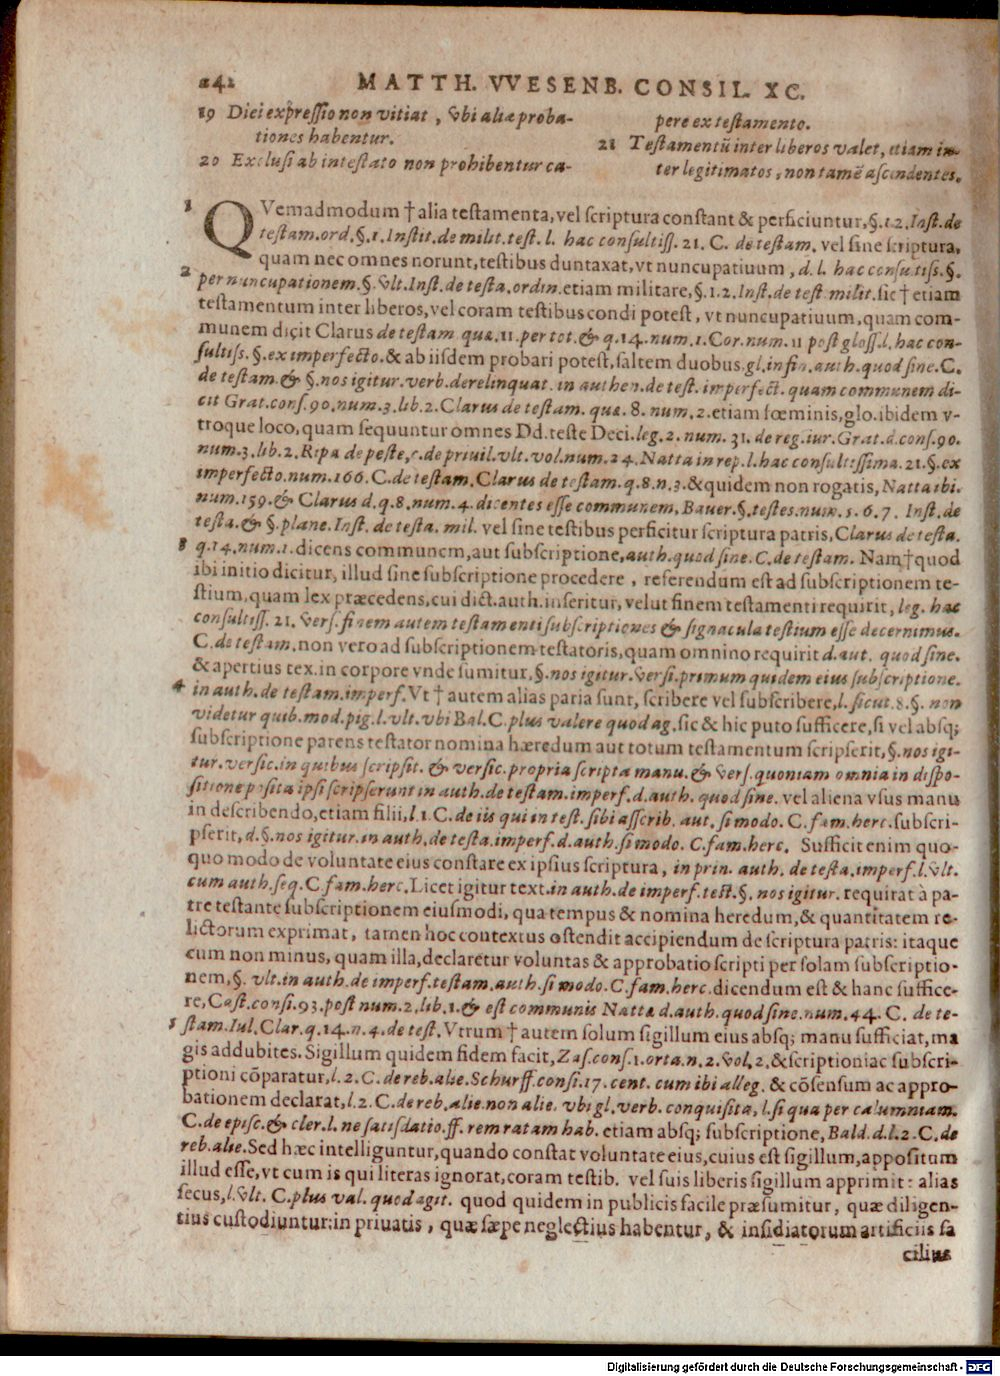 242 MATTH. VVESENB. CONSIL. XC.
19 Diei expressio non vitiat, vbi aliæ proba-
tiones habentur.
20 Exclusi ab intestato non prohibentur ca-
pere ex testamento.
21 Testamentũ inter liberos valet, etiam in-
ter legitimatos, non tamẽ ascendentes.
1 QVemadmodum † alia testamenta, vel scriptura constant & perficiuntur, §.1.2. Inst. de
testam. ord. §.1. Instit. de milit. test. l. hac consultiss. 21. C. de testam. vel sine scriptura,
quam nec omnes norunt, testibus duntaxat, vt nuncupatiuum, d. l. hac consultiss. §.
2 per nuncupationem. §. vlt. Inst. de testa. ordin. etiam militare, §.1.2. Inst. de test. milit. sic † etiam
testamentum inter liberos, vel coram testibus condi potest, vt nuncupatiuum, quam com-
munem dicit Clarus de testam. quæ. 11. per tot. & q.14. num.1. Cor. num. 11 post gloss. l. hac con-
sultiss. §. ex imperfecto. & ab iisdem probari potest, saltem duobus. gl. in fin. auth. quod sine. C.
de testam. & §. nos igitur. verb. derelinquat. in authen. de test. imperfect. quam communem di-
cit Grat. cons. 90. num. 3. lib. 2. Clarus de testam. quæ. 8. num. 2. etiam fœminis, glo. ibidem v-
troque loco, quam sequuntur omnes Dd. teste Deci. leg. 2. num. 31. de reg. iur. Grat. d. cons. 90.
num. 3. lib. 2. Ripa de peste, c. de priuil. vlt. vol. num. 24. Natta in rep. l. hac consultissima. 21. §. ex
imperfecto. num. 166. C. de testam. Clarus de testam. q. 8. n. 3. & quidem non rogatis, Natta ibi.
num. 159. & Clarus d. q. 8. num. 4. dicentes esse communem, Bauer. §. testes. num. 5. 6. 7. Inst. de
testa. & §. plane. Inst. de testa. mil. vel sine testibus perficitur scriptura patris, Clarus de testa.
3 q. 14. num. 1. dicens communem, aut subscriptione, auth. quod sine. C. de testam. Nam † quod
ibi initio dicitur, illud sine subscriptione procedere, referendum est ad subscriptionem te-
stium, quam lex præcedens, cui dict. auth. inseritur, velut finem testamenti requirit, leg. hac
consultiss. 21. Vers. finem autem testamenti subscriptiones & signacula testium esse decernimus.
C. de testam, non vero ad subscriptionem testatoris, quam omnino requirit d. aut. quod sine.
& apertius tex. in corpore vnde sumitur, §. nos igitur. Versi. primum quidem eius subscriptione.
4 in auth. de testam. imperf. Vt † autem alias paria sunt, scribere vel subscribere, l. sicut. 8. §. non
videtur quib. mod. pig. l. vlt. vbi Bal. C. plus valere quod ag. sic & hic puto sufficere, si vel absq;
subscriptione parens testator nomina hæredum aut totum testamentum scripserit, §. nos igi-
tur. versic. in quibus scripsit. & versic. propria scripta manu. & Vers. quoniam omnia in dispo-
sitione posita ipsi scripserunt in auth. de testam. imperf. d. auth. quod sine. vel aliena vsus manu
in describendo, etiam filii, l. 1. C. de iis qui in test. sibi asscrib. aut. si modo. C. fam. herc. subscri-
pserit, d. §. nos igitur. in auth. de testa. imperf. d. auth. si modo. C. fam. herc. Sufficit enim quo-
quo modo de voluntate eius constare ex ipsius scriptura, in prin. auth. de testa. imperf. l. vlt.
cum auth. seq. C. fam. herc. Licet igitur text. in auth. de imperf. test. §. nos igitur. requirat à pa-
tre testante subscriptionem eiusmodi, qua tempus & nomina heredum, & quantitatem re-
lictorum exprimat, tamen hoc contextus ostendit accipiendum de scriptura patris: itaque
cum non minus, quam illa, declaretur voluntas & approbatio scripti per solam subscriptio-
nem, §. vlt. in auth. de imperf. testam. auth. si modo. C. fam. herc. dicendum est & hanc suffice-
re, Cast. consi. 93. post num. 2. lib. 1. & est communis Natta d. auth. quod sine. num. 44. C. de te-
5 stam. Iul. Clar. q. 14. n. 4. de test. Vtrum † autem solum sigillum eius absq; manu sufficiat, ma
gis addubites. Sigillum quidem fidem facit, Zas. cons. 1. orta. n. 2. vol. 2. & scriptioni ac subscri-
ptioni cõparatur, l. 2. C. de reb. alie. Schurff. consi. 17. cent. cum ibi alleg. & cõsensum ac appro-
bationem declarat, l. 2. C. de reb. alie. non alie. vbi gl. verb. conquisita, l. si qua per calumniam.
C. de episc. & cler. l. ne satisdatio. ff. rem ratam hab. etiam absq; subscriptione, Bald. d. l. 2. C. de
reb. alie. Sed hæc intelliguntur, quando constat voluntate eius, cuius est sigillum, appositum
illud esse, vt cum is qui literas ignorat, coram testib. vel suis liberis sigillum apprimit: alias
secus, l. vlt. C. plus val. quod agit. quod quidem in publicis facile præsumitur, quæ diligen-
tius custodiuntur: in priuatis, quæ sæpe neglectius habentur, & insidiatorum artificiis fa
cilius
Digitalisierung gefördert durch die Deutsche Forschungsgemeinschaft - DFG